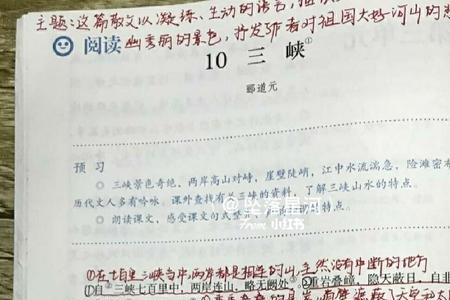 主题:这篇散文以凝练、生动的语言,
阅读
幽秀丽的景色,抒发了作者对祖国大好河山的
10 三峡①
郦道元
预习
◎ 三峡景色奇绝,两岸高山对峙,崖壁陡峭,江中水流湍急,险滩密布
历代文人多有吟咏。课外查找有关三峡的资料,了解三峡山水的特点。
◎ 朗读课文,感受课文句式整
的特点。
@坠落星河
小红书
①在七百里三峡当中,两岸都是相连的山,全然没有中断的地方
①自②三峡七百里中,两岸连山,略无阙处。②重岩叠嶂,隐天蔽日,自非